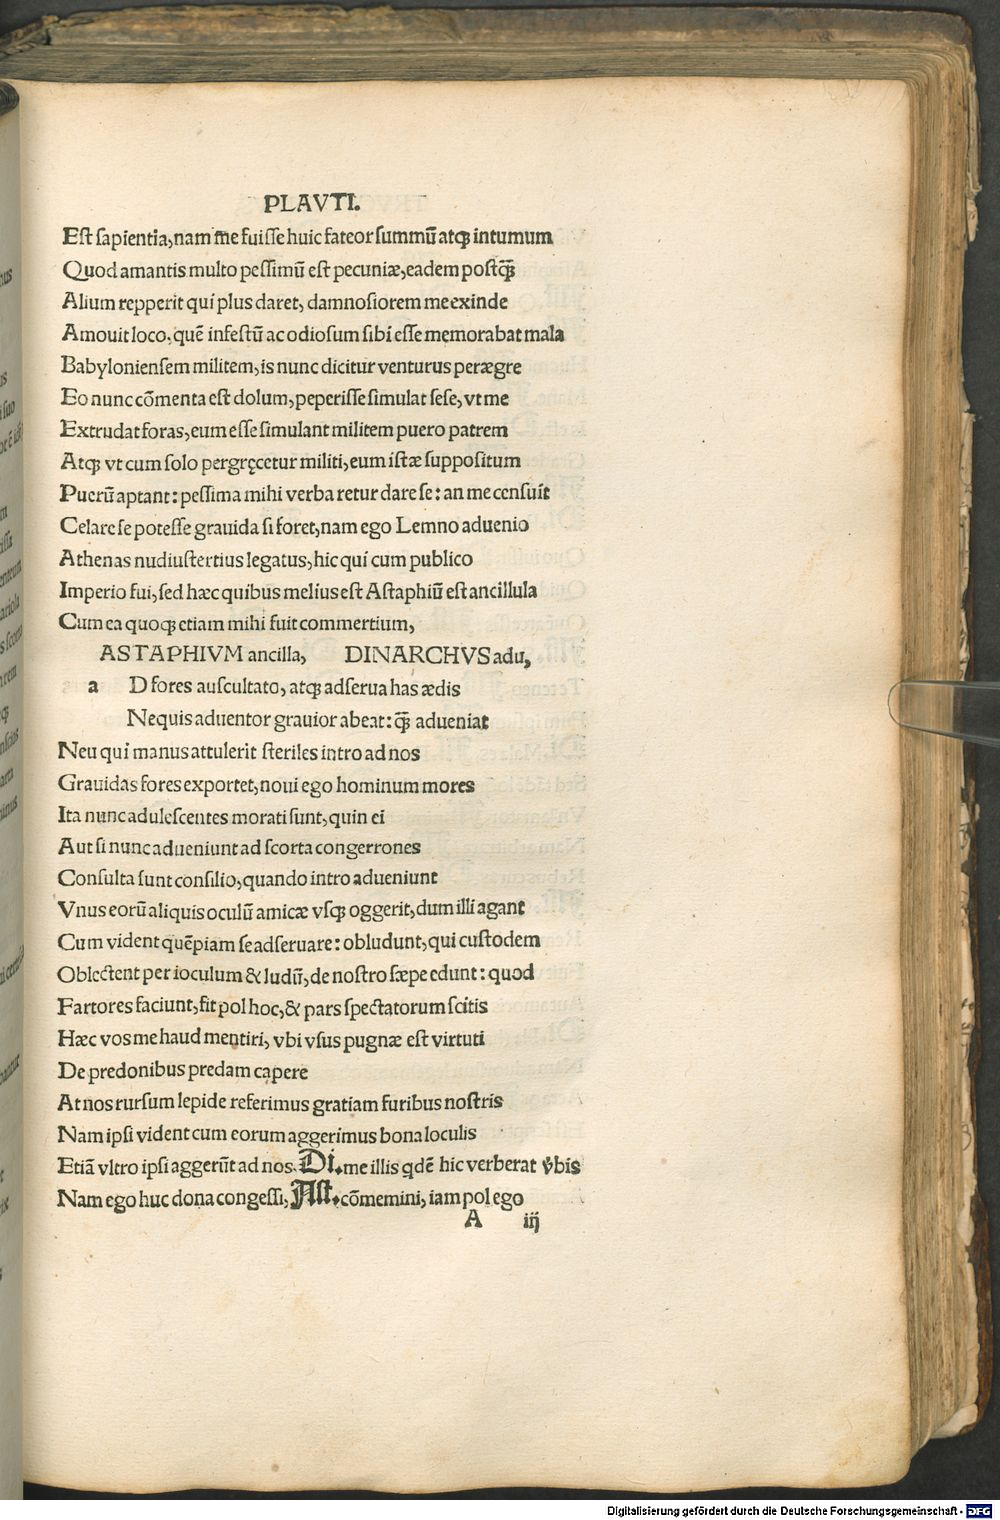 PLAVTI.
Est sapientia, nam me fuisse huic fateor summũ atqꝫ intumum
Quod amantis multo pessimũ est pecuniæ, eadem postq̃ꝫ
Alium repperit qui plus daret, damnosiorem meexinde
Amouit loco, quẽ infestũ ac odiosum sibi esse memorabat mala
Babyloniensem militem, is nunc dicitur venturus peræegre
Eo nunc cõmenta est dolum, peperisse simulat sese, vt me
Extrudat foras, eum esse simulant militem puero patrem
Atqꝫ vt cum solo pergręcetur militi, eum istæ suppositum
Puerũ aptant: pessima mihi verba retur dare se: an me censuit
Celare se potesse grauida si foret, nam ego Lemno aduenio
Athenas nudiustertius legatus, hic qui cum publico
Imperio fui, sed hæc quibus melius est Astaphiũ est ancillula
Cum ea quoqꝫ etiam mihi fuit commertium,
ASTAPHIVM ancilla, DINARCHVS adu,
a D fores auscultato, atqꝫ adserua has ædis
Nequis aduentor grauior abeat: q̃ꝫ adueniat
Neu qui manus attulerit steriles intro ad nos
Grauidas fores exportet, noui ego hominum mores
Ita nunc adulescentes morati sunt, quin ei
Aut si nunc adueniunt ad scorta congerrones
Consulta sunt consilio, quando intro adueniunt
Vnus eorũ aliquis oculũ amicæ vsqꝫ oggerit, dum illi agant
Cum vident quẽpiam se adseruare: obludunt, qui custodem
Oblectent per ioculum & ludũ, de nostro sæpe edunt: quod
Fartores faciunt, fit pol hoc, & pars spectatorum scitis
Hæc vos me haud mentiri, vbi vsus pugnæ est virtuti
De predonibus predam capere
At nos rursum lepide referimus gratiam furibus nostris
Nam ipsi vident cum eorum aggerimus bona loculis
Etiã vltro ipsi aggerũt ad nos. Di. me illis qdẽ hic verberat ṽbis
Nam ego huc dona congessi, Ast. cõmemini, iam pol ego
A iij
Digitalisierung gefördert durch die Deutsche Forschungsgemeinschaft - DFG